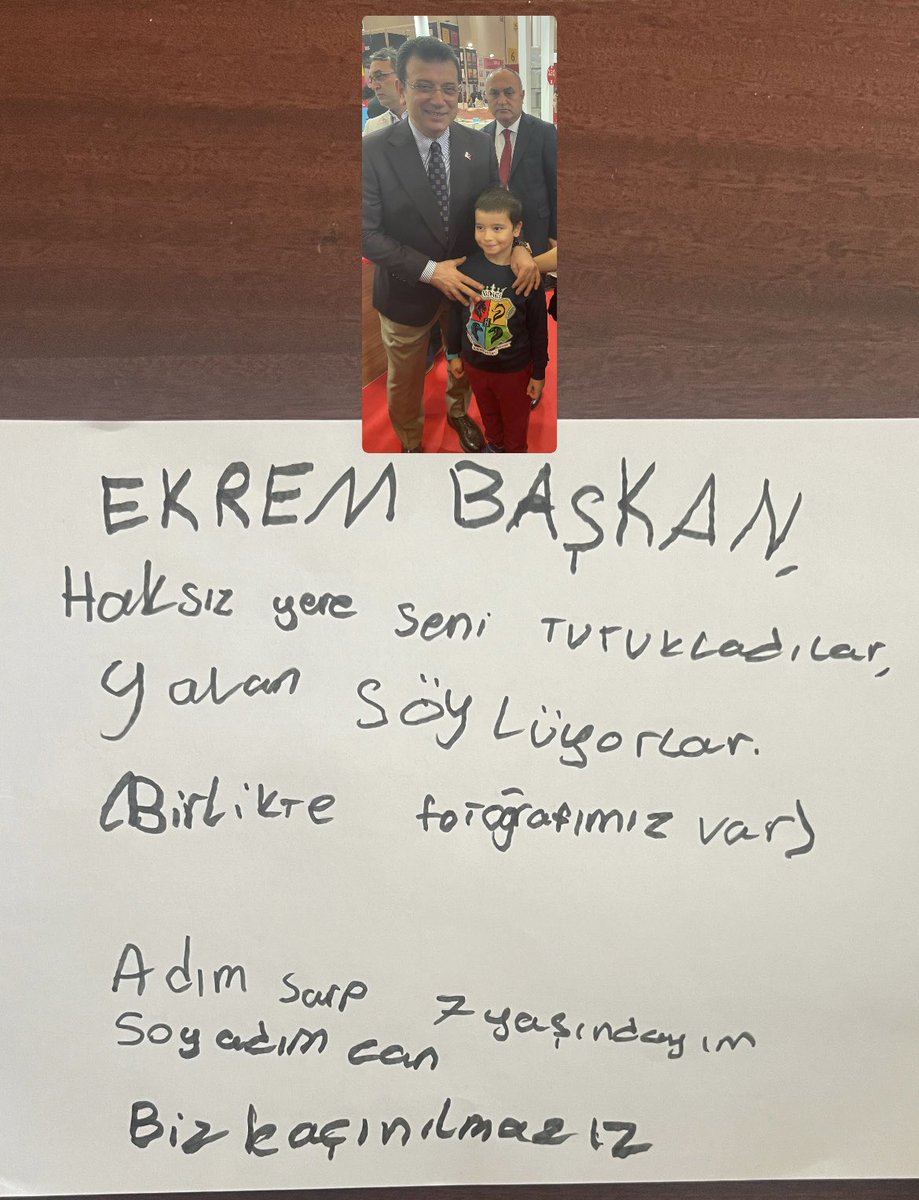 EKREM BAŞKAN,
Haksız yere seni TUTUKLadılar,
Yalan SÖYLÜyorlar.
(Birlikte fotoğrafımız var)
Adım sarp 7 yaşındayım
Soyadım can
Biz kaçınılmazız